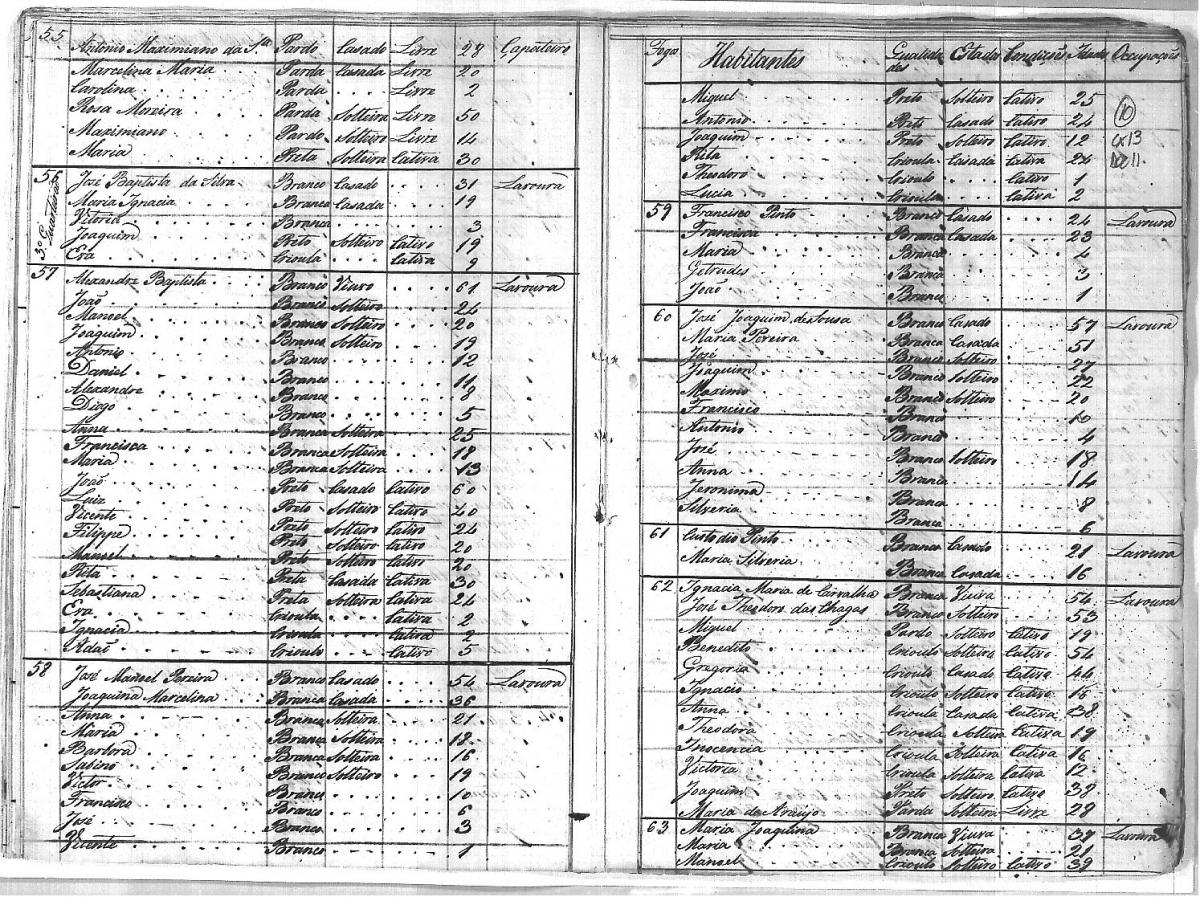 55
Antonio Maximiano da S.ª Pardo Casado Livre 28 Çapateiro
Marcelina Maria Parda Casada Livre 20
Carolina Parda Livre 2
Rosa Moreira Parda Solteira Livre 50
Maximiano Pardo Solteiro Livre 14
Maria Preta Solteira Cativa 30
56 José Baptista da Silva Branco Casado 31 Lavoura
3º Quarteirão
Maria Ignacia Branca Casada 19
Vitoria Branca 3
Joaquim Preto Solteiro Cativo 19
Eva Crioula Cativa 9
57 Alexandre Baptista Branco Viuvo 61 Lavoura
João Branco Solteiro 24
Manoel Branco Solteiro 20
Joaquim Branco Solteiro 19
Antonio Branco 12
Daniel Branco 11
Alexandre Branco 8
Diogo Branco 5
Anna Branca Solteira 25
Francisca Branca Solteira 18
Maria Branca Solteira 13
João Preto Casado Cativo 60
Luiz Preto Solteiro Cativo 40
Vicente Preto Solteiro Cativo 24
Filippe Preto Solteiro Cativo 20
Manoel Preto Solteiro Cativo 20
Rita Preta Casada Cativa 30
Sebastiana Preta Solteira Cativa 24
Eva Crioula Cativa 2
Ignacia Crioula Cativa 2
Adão Crioulo Cativo 5
58 José Manoel Pereira Branco Casado 54 Lavoura
Joaquina Marcelina Branca Casada 36
Anna Branca Solteira 21
Maria Branca Solteira 18
Barbora Branca Solteira 16
Sabino Branco Solteiro 19
Victor Branco 10
Francisco Branco 6
José Branco 3
Vicente Branco 1
Fogos Habitantes Qualidades Estados Condições Idades Occupações
Miguel Preto Solteiro Cativo 25
Antonio Preto Casado Cativo 24
Joaquim Preto Solteiro Cativo 12
Rita Crioula Casada Cativa 24
Theodoro Crioulo Cativo 1
Lucia Crioula Cativa 2
10
CX13
59 Francisco Pinto Branco Casado 24 Lavoura
Francisca Branca Casada 23
Maria Branca 4
Getrudes Branca 3
João Branco 1
60 José Joaquim de Sousa Branco Casado 57 Lavoura
Maria Pereira Branca Casada 51
José Branco Solteiro 27
Joaquim Branco Solteiro 22
Maximo Branco Solteiro 20
Francisco Branco 10
Antonio Branco 4
José Branco Solteiro 18
Anna Branca 14
Jeronima Branca 8
Silveria Branca 6
61 Custodio Pinto Branco Casado 21 Lavoura
Maria Silveria Branca Casada 16
62 Ignacia Maria de Carvalha Branca Viuva 54 Lavoura
José Theodoro das Chagas Branco Solteiro 53
Miguel Pardo Solteiro Cativo 19
Benedito Crioulo Solteiro Cativo 54
Gregorio Crioulo Casado Cativo 44
Ignacio Crioulo Solteiro Cativo 16
Anna Crioula Casada Cativa 38
Theodora Crioula Solteira Cativa 19
Inocencia Crioula Solteira Cativa 16
Victoria Crioula Solteira Cativa 12
Joaquim Preto Solteiro Cativo 38
Maria de Araujo Parda Solteira Livre 28
63 Maria Joaquina Branca Viuva 37 Lavoura
Maria Branca Solteira 21
Manoel Crioulo Solteiro Cativo 39